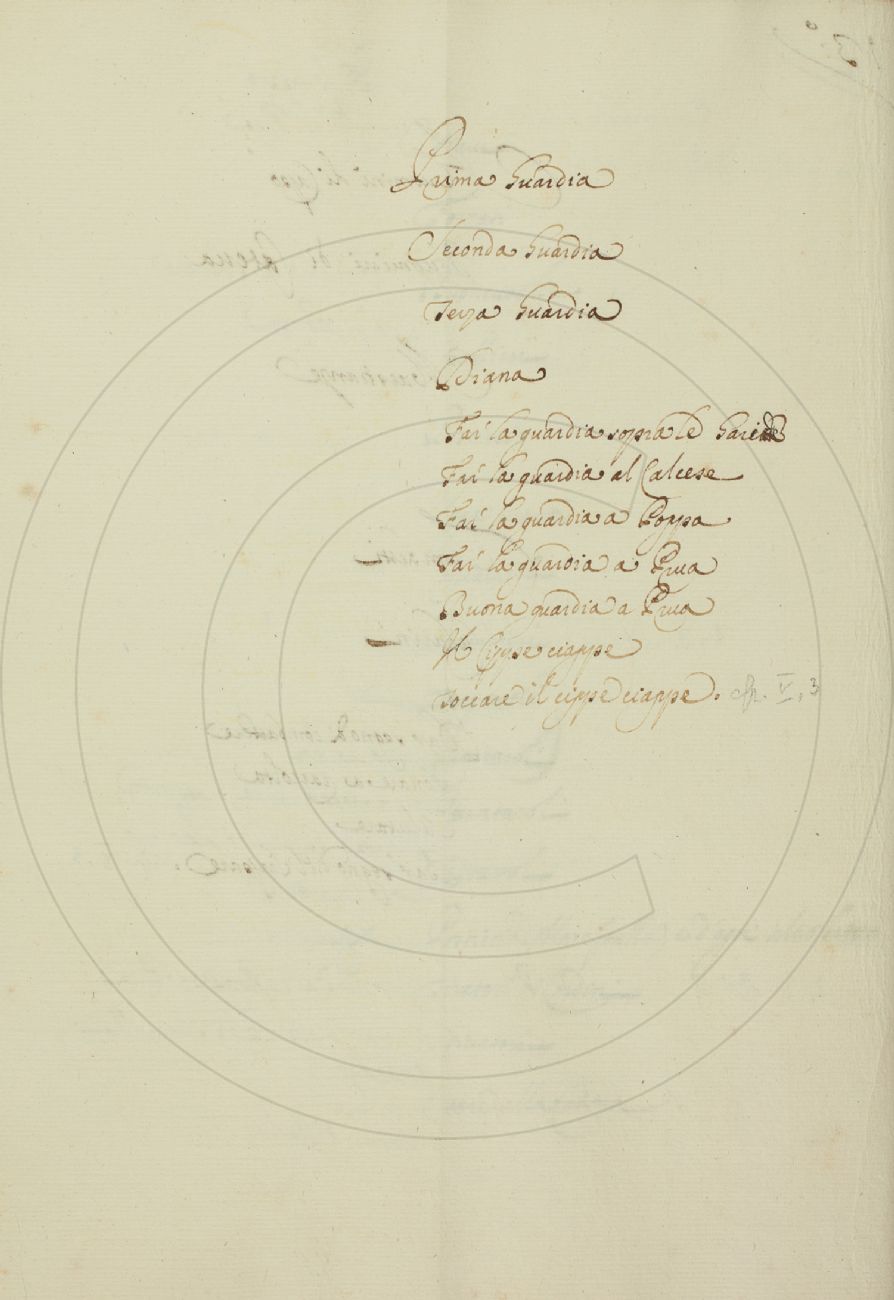 Prima Guardia
Seconda Guardia
Terza Guardia
Diana
Far' la guardia sopra le
Far' la guardia al Calcese
Far' la guardia a Poppa
Far' la guardia a Prua
Buona guardia a Prua
Il Cippe ciappe
Toccare il cippe ciappe. cfr. V, 3